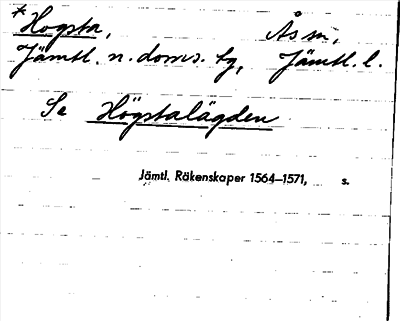 *Hogsta, Ås sn,
Jämtl. n. doms. tg, Jämtl. l.
Se Högstalägden
Jämtl. Räkenskaper 1564–1571, s.